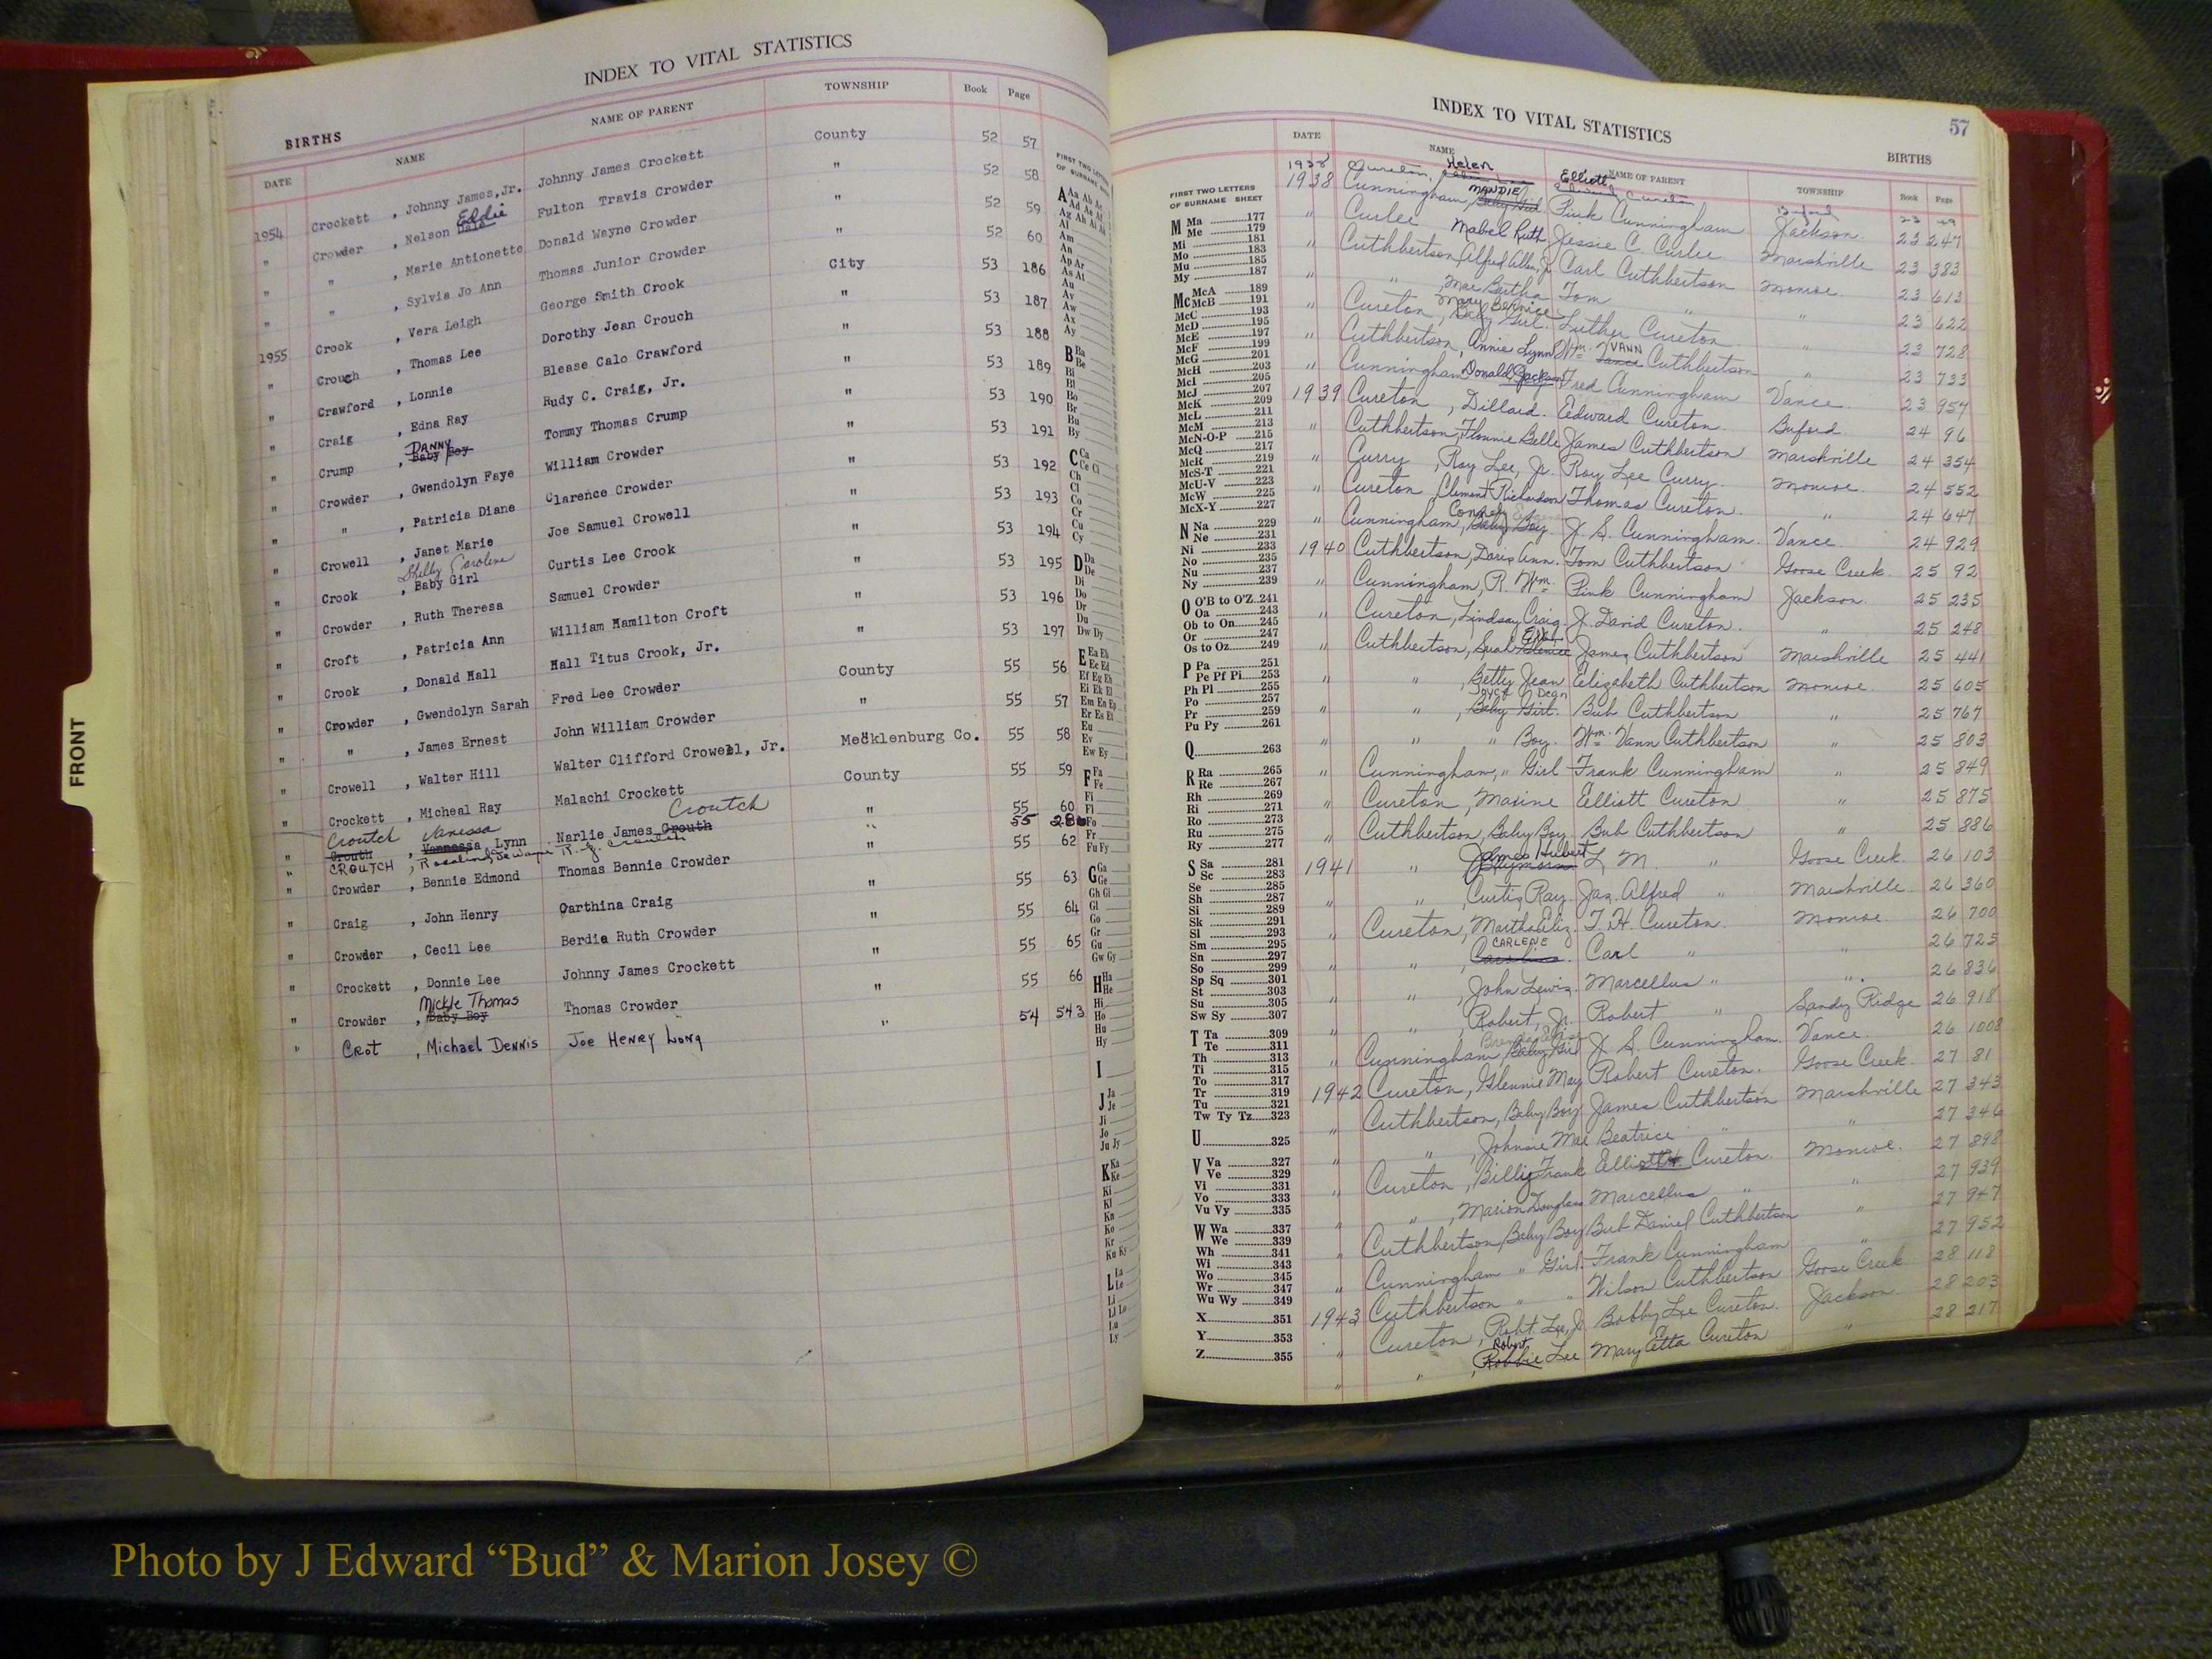 FRONT
INDEX TO VITAL STATISTICS
BIRTHS
DATE NAME NAME OF PARENT TOWNSHIP Book Page
1954 Crockett , Johnny James, Jr. Johnny James Crockett County 52 57
" Crowder , Nelson Dale Eddie Fulton Travis Crowder " 52 58
" " , Marie Antionette Donald Wayne Crowder " 52 59
" " , Sylvia Jo Ann Thomas Junior Crowder " 52 60
1955 Crook , Vera Leigh George Smith Crook City 53 186
" Crouch , Thomas Lee Dorothy Jean Crouch " 53 187
" Crawford , Lonnie Blease Calo Crawford " 53 188
" Craig , Edna Ray Rudy C. Craig, Jr. " 53 189
" Crump , Baby Boy DANNY Tommy Thomas Crump " 53 190
" Crowder , Gwendolyn Faye William Crowder " 53 191
" " , Patricia Diane Clarence Crowder " 53 192
" Crowell , Janet Marie Joe Samuel Crowell " 53 193
" Crook , Baby Girl Shelly Caroline Curtis Lee Crook " 53 194
" Crowder , Ruth Theresa Samuel Crowder " 53 195
" Croft , Patricia Ann William Hamilton Croft " 53 196
" Crook , Donald Hall Hall Titus Crook, Jr. " 53 197
" Crowder , Gwendolyn Sarah Fred Lee Crowder County 55 56
" " , James Ernest John William Crowder " 55 57
" Crowell , Walter Hill Walter Clifford Crowell, Jr. Mecklenburg Co. 55 58
" Crockett , Micheal Ray Malachi Crockett County 55 59
" Croutch Crouth , Vanessa Lynn Narlie James Crouth Croutch " 55 60
" CROUTCH , Rosalind Jewayne R. J. Croutch " 55 286
" Crowder , Bennie Edmond Thomas Bennie Crowder " 55 62
" Craig , John Henry Carthina Craig " 55 63
" Crowder , Cecil Lee Berdia Ruth Crowder " 55 64
" Crockett , Donnie Lee Johnny James Crockett " 55 65
" Crowder , Baby Boy Mickle Thomas Thomas Crowder " 55 66
" Crot , Michael Dennis Joe Henry Long " 54 543
INDEX TO VITAL STATISTICS
57
BIRTHS
DATE NAME NAME OF PARENT TOWNSHIP Book Page
1938 Cureton, Helen Elliott Cureton Buford 23 49
1938 Cunningham, Baby Girl MANDIE Pink Cunningham Jackson 23 247
" Curlee Mabel Ruth Jessie C. Curlee Marshville 23 383
" Cuthbertson, Alfred Allen, Jr. Carl Cuthbertson Monroe 23 613
" " , Mae Bertha Tom " " 23 622
" Cureton, Baby Girl Mary Bernice Luther Cureton " 23 728
" Cuthbertson, Annie Lynn Wm. Vance VANN Cuthbertson " 23 733
" Cunningham Donald Jackson Fred Cunningham Vance 23 957
1939 Cureton , Dillard. Edward Cureton. Buford 24 96
" Cuthbertson, Flonnie Belle James Cuthbertson Marshville 24 354
" Curry , Roy Lee, Jr. Roy Lee Curry. Monroe. 24 552
" Cureton, Clement Richardson Thomas Cureton. " 24 647
" Cunningham, Baby Boy J. S. Cunningham. Vance 24 929
1940 Cuthbertson, Doris Ann. Tom Cuthbertson Goose Creek. 25 92
" Cunningham, R. Wm. Pink Cunningham Jackson. 25 235
" Cureton, Lindsay Craig. J. David Cureton. " 25 248
" Cuthbertson, James Cuthbertson Marshville 25 441
" " , Betty Jean Elizabeth Cuthbertson Monroe. 25 605
" " , Baby Girl. Joyce Dean Bub Cuthbertson " 25 767
" " " Boy. Wm. Vann Cuthbertson " 25 803
" Cunningham, " Girl Frank Cunningham " 25 849
" Cureton , Maxine Elliott Cureton " 25 875
" Cuthbertson, Baby Boy. Bub Cuthbertson " 25 886
1941 " James Hubert L. M. " Goose Creek. 26 103
" " , Curtis Ray. Jas. Alfred " Marshville 26 360
" Cureton, Martha Eliz. T. H. Cureton. Monroe. 26 700
" " , Caroline. CARLENE Carl " " 26 725
" " , John Lewis. Marcellus " " 26 836
" " , Robert, Jr. Robert " Sandy Ridge 26 918
" Cunningham Baby Girl J. S. Cunningham. Vance. 26 1008
1942 Cureton, Glennie May Robert Cureton. Goose Creek. 27 81
" Cuthbertson, Baby Boy. James Cuthbertson Marshville 27 343
" " , Johnsie Mae Beatrice " " 27 346
" Cureton , Billie Frank Elliott Cureton. Monroe. 27 898
" " , Marion Douglas Marcellus " " 27 939
" Cuthbertson, Baby Boy Bub Daniel Cuthbertson " 27 947
" Cunningham " Girl. Frank Cunningham " 27 952
1943 Cuthbertson " " Wilson Cuthbertson Goose Creek 28 118
" Cureton , Robt. Lee, Jr. Bobby Lee Cureton. Jackson. 28 203
" " , Robbie Robert Lee Mary Etta Cureton " 28 217
FIRST TWO LETTERS
OF SURNAME SHEET
M Ma 177
Me 179
Mi 181
Mo 183
Mu 185
My 187
Mc McA 189
McB 191
McC 193
McD 195
McE 197
McF 199
McG 201
McH 203
McI 205
McJ 207
McK 209
McL 211
McM 213
McN-O-P 215
McQ 217
McR 219
McS-T 221
McU-V 223
McW 225
McX-Y 227
N Na 229
Ne 231
Ni 233
No 235
Nu 237
Ny 239
O O'B to O'Z 241
Oa 243
Ob to On 245
Or 247
Os to Oz 249
P Pa 251
Pe Pf Pi 253
Ph Pl 255
Po 257
Pr 259
Pu Py 261
Q 263
R Ra 265
Re 267
Rh 269
Ri 271
Ro 273
Ru 275
Ry 277
S Sa 281
Sc 283
Se 285
Sh 287
Si 289
Sk 291
Sl 293
Sm 295
Sn 297
So 299
Sp Sq 301
St 303
Su 305
Sw Sy 307
T Ta 309
Te 311
Th 313
Ti 315
To 317
Tr 319
Tu 321
Tw Ty Tz 323
U 325
V Va 327
Ve 329
Vi 331
Vo 333
Vu Vy 335
W Wa 337
We 339
Wh 341
Wi 343
Wo 345
Wr 347
Wu Wy 349
X 351
Y 353
Z 355
Photo by J Edward “Bud” & Marion Josey ©